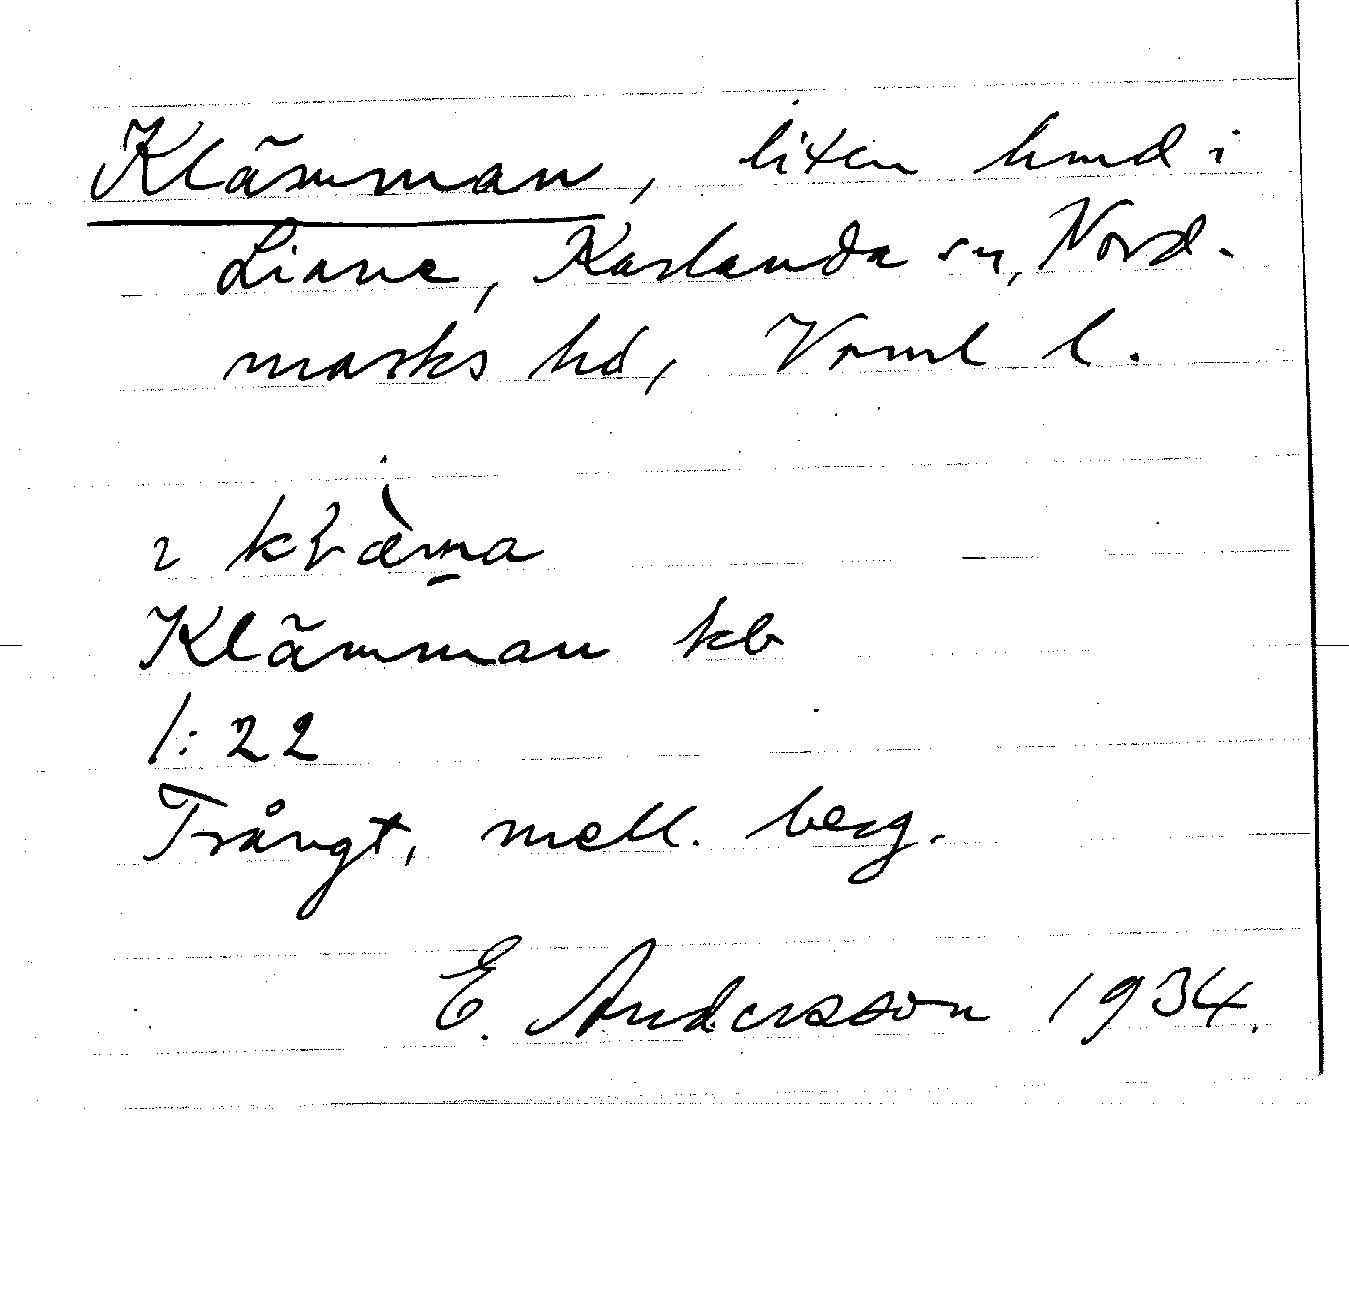 Klämman, liten hmd i
Liane, Karlanda sn, Nord-
marks hd, Vrml l.
kłæ̀ma
Klämman kb
1:22
Trångt, mell. berg.
E. Andersson 1934.